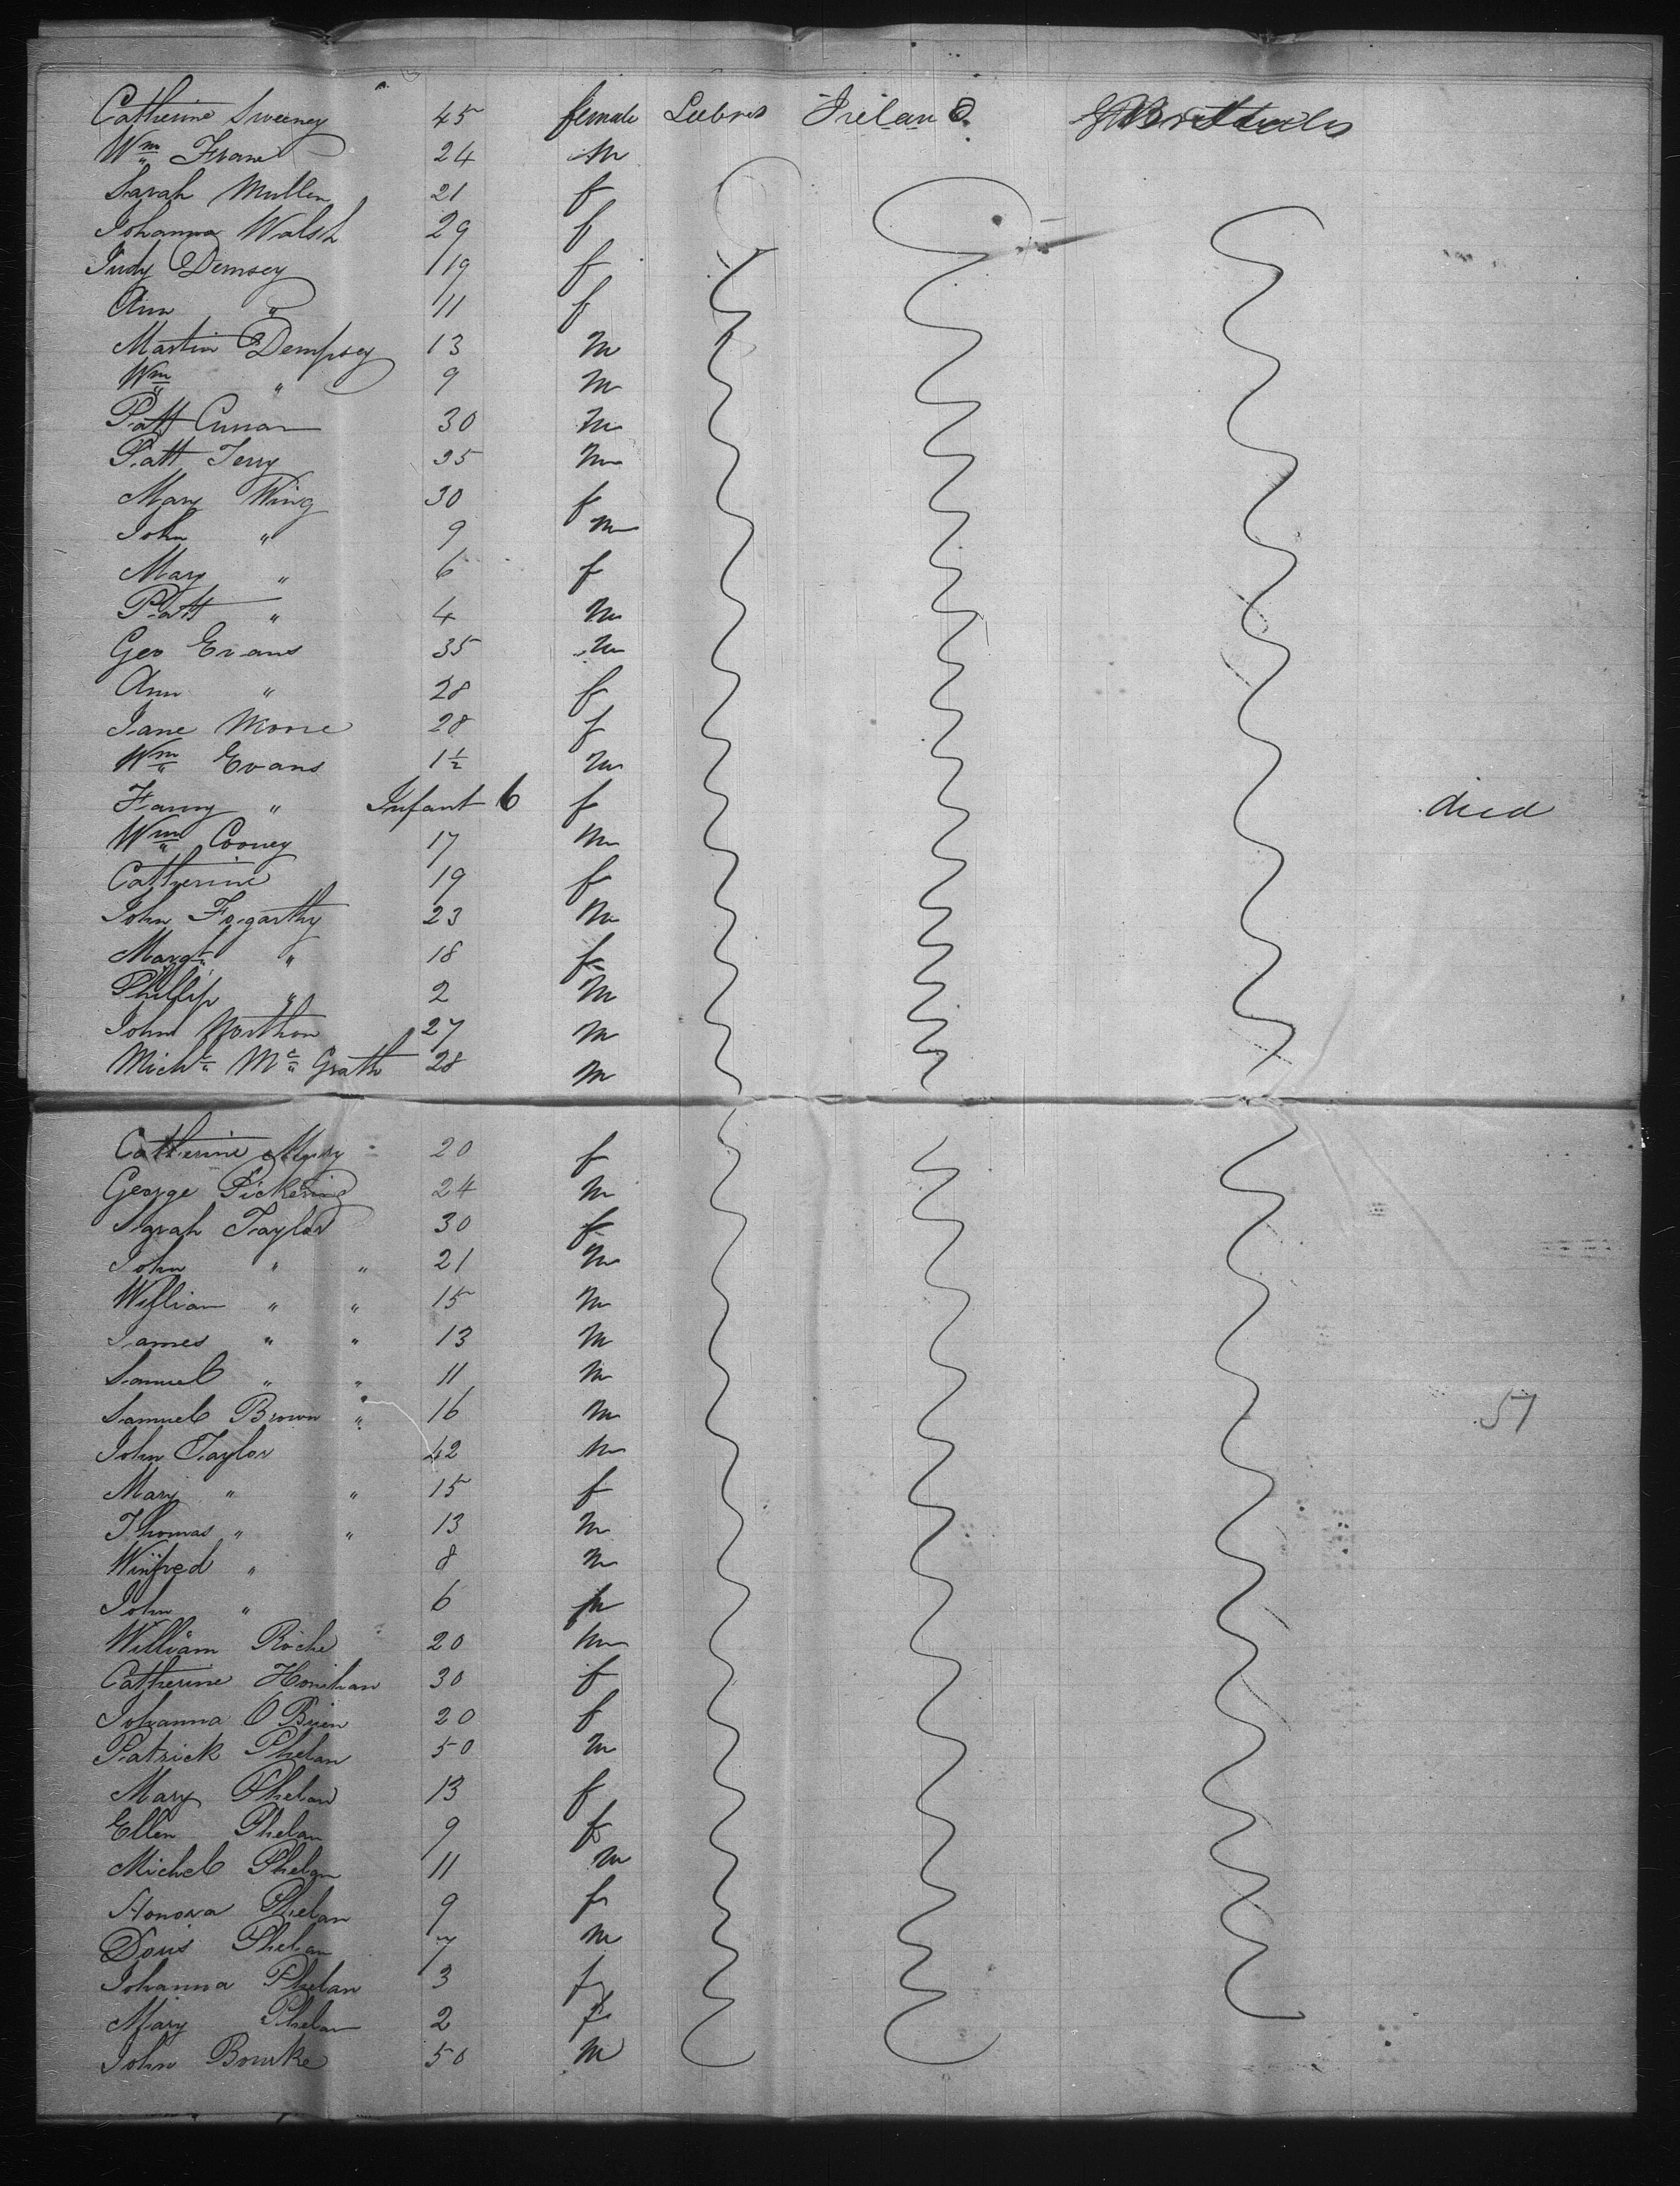 Catherine Sweeney 45 female Ireland
Wm 24 m
Sarah Mullen 21 f
Johanna Walsh 29 f
Judy Demsey 19 f
Ann " 11 f
Martin Dempsey 13 m
Wm " 9 m
Patt Curran 30 m
Patt Terry 35 m
Mary Wing 30 f
John " 9 m
Mary " 6 f
Patt " 4 m
Geo Evans 35 m
Ann " 28 f
Jane Moore 28 f
Wm Evans 1½ m
Fanny " Infant 6 f died
Wm Cooney 17 m
Catherine 19 f
John Fogarthy 23 m
Margt " 18 f
Phillip " 2 m
John Northon 27 m
Michl Mc Grath 28 m
Catherine 20 f
George Pickering 24 m
Sarah Taylor 30 f
John " " 21 m
William " " 15 m
James " " 13 m
Samuel " " 11 m
Samuel Brown " 16 m 57
John Taylor 42 m
Mary " " 15 f
Thomas " " 13 m
Winfred " 8 m
John " 6 m
William Roche 20 m
Catherine Honihan 30 f
Johanna O Brien 20 f
Patrick Phelan 50 m
Mary Phelan 13 f
Ellen Phelan 9 f
Michel Phelan 11 m
Honora Phelan 9 f
Phelan 7 m
Johanna Phelan 3 f
Mary Phelan 2 f
John Bourke 50 m